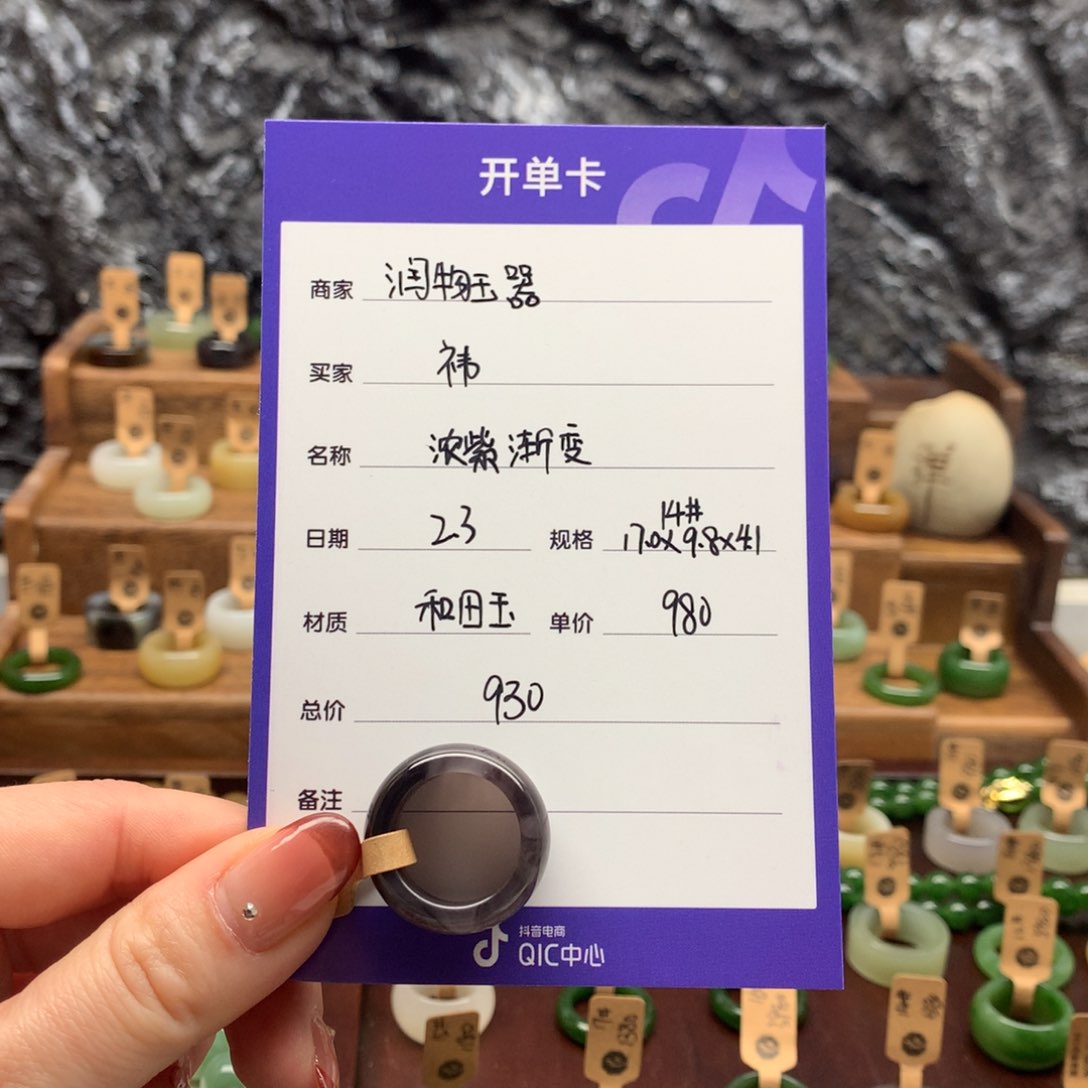 开单卡
商家 润物玉器
买家 祎
名称 浓紫渐变
日期 2.3 规格 14# 17.0x9.8x4.1
材质 和田玉 单价 980
总价 930
备注
抖音电商
QIC中心